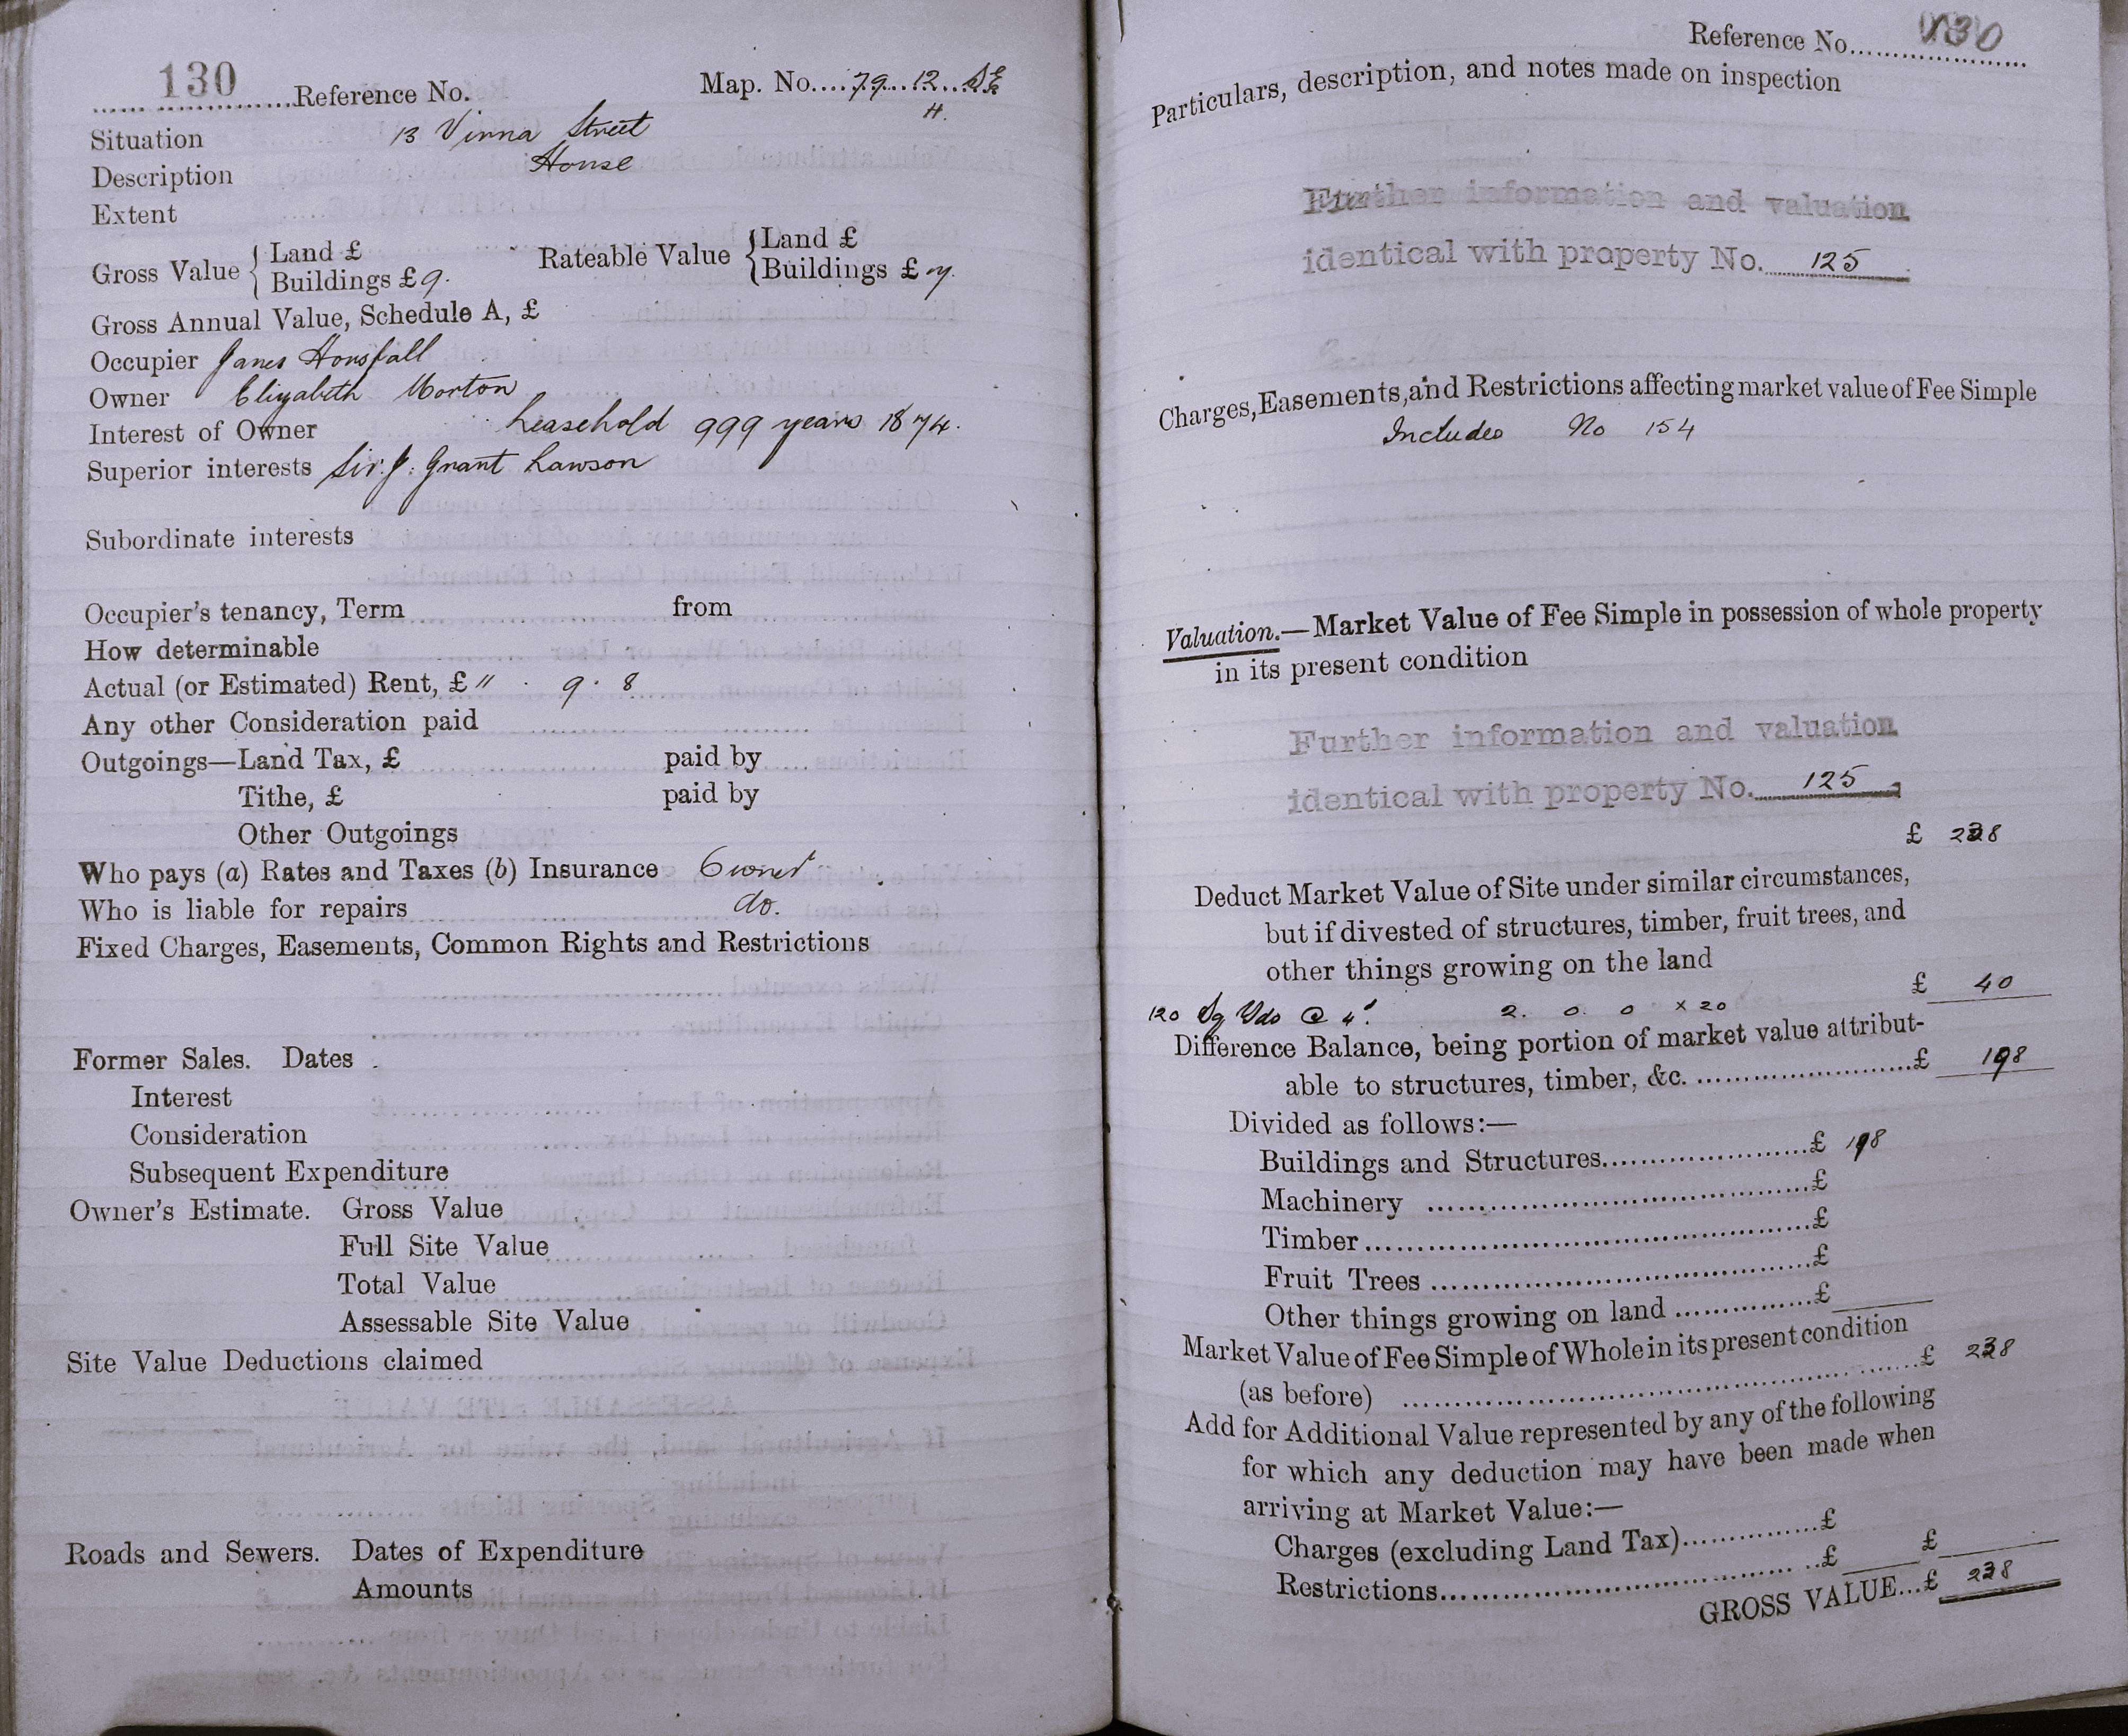 130 Reference No. Map. No. 79. 12. SE
H.
Situation 13 Vinna Street
Description House
Extent
Gross Value { Land £ Rateable Value { Land £
Buildings £ 9. Buildings £ 7.
Gross Annual Value, Schedule A, £
Occupier James Horsfall
Owner Elizabeth Morton
Interest of Owner Leasehold 999 years 1874.
Superior interests Sir J. Grant Lawson
Subordinate interests
Occupier's tenancy, Term from
How determinable
Actual (or Estimated) Rent, £ " . 9 . 8
Any other Consideration paid
Outgoings—Land Tax, £ paid by
Tithe, £ paid by
Other Outgoings
Who pays (a) Rates and Taxes (b) Insurance Owner
Who is liable for repairs do.
Fixed Charges, Easements, Common Rights and Restrictions
Former Sales. Dates
Interest
Consideration
Subsequent Expenditure
Owner's Estimate. Gross Value
Full Site Value
Total Value
Assessable Site Value
Site Value Deductions claimed
Roads and Sewers. Dates of Expenditure
Amounts
Reference No. 130
Particulars, description, and notes made on inspection
Further information and valuation
identical with property No. 125
Charges, Easements, and Restrictions affecting market value of Fee Simple
Includes No 154
Valuation.—Market Value of Fee Simple in possession of whole property
in its present condition
Further information and valuation
identical with property No. 125
£ 238
Deduct Market Value of Site under similar circumstances,
but if divested of structures, timber, fruit trees, and
other things growing on the land
£ 40
120 Sq Yds @ 4d. 2. 0. 0 x 20
Difference Balance, being portion of market value attribut-
able to structures, timber, &c. £ 198
Divided as follows:—
Buildings and Structures £ 198
Machinery £
Timber £
Fruit Trees £
Other things growing on land £
Market Value of Fee Simple of Whole in its present condition
(as before) £ 238
Add for Additional Value represented by any of the following
for which any deduction may have been made when
arriving at Market Value:—
Charges (excluding Land Tax) £
Restrictions £ £
GROSS VALUE... £ 238